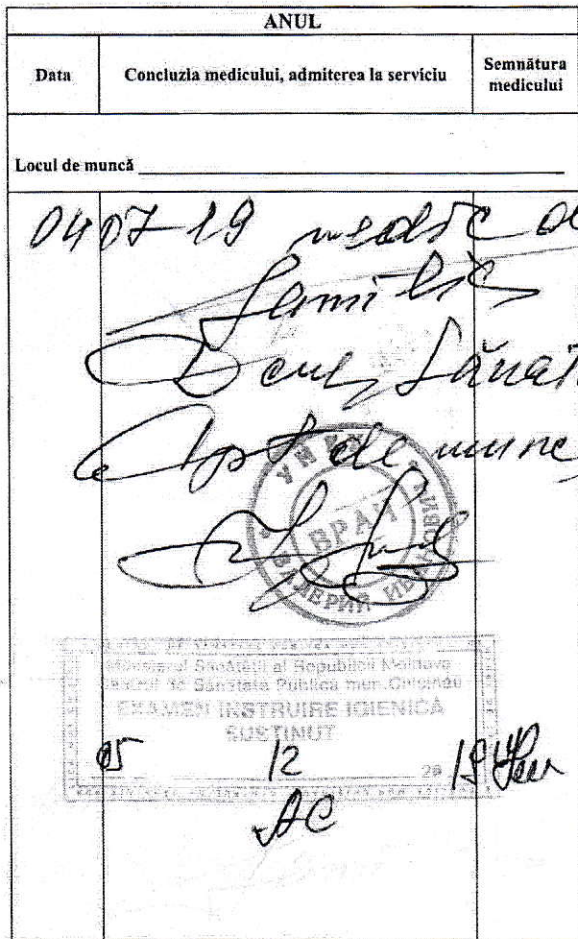 ANUL
Data
Concluzia medicului, admiterea la serviciu
Semnătura medicului
Locul de muncă
04 07 19 medic de
familie
Sănăt
Apt de munc
УНКУ
ВРАЧ
ВАЛЕРИЙ ИВАНОВИЧ
Ministerul Sănătății al Republicii Moldova
Centrul de Sănătate Publică mun. Chișinău
EXAMEN INSTRUIRE IGIENICĂ
SUSȚINUT
05 12 20 19
AC